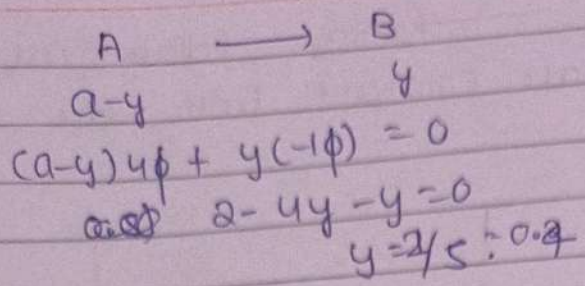 A ⟶ B
a-y y
(a-y)4ϕ + y(-1ϕ) = 0
2-4y-y=0
y=2/5 = 0.4